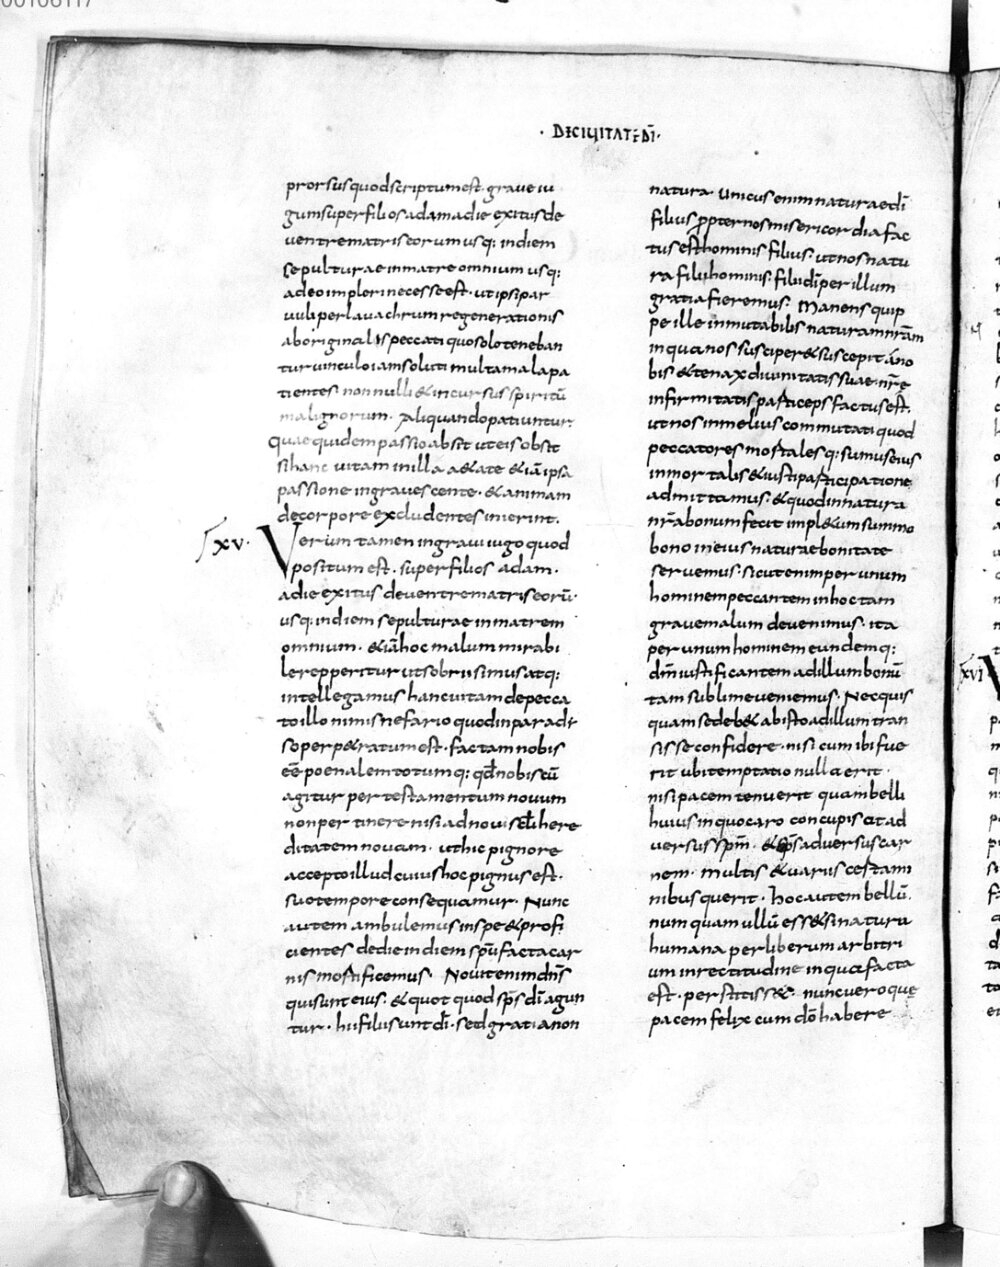 00106117
· DECIUITATE DĪ ·
prorsus quod scriptum est · graue iu
gum super filios adam a die exitus de
uentre matris eorum usq; in diem
sepulturae in matre omnium usq;
adeo impleri necesse est · ut ipsi par
uuli per lauachrum regenerationis
ab originalis peccati quo solo teneban
tur uinculo iam soluti multa mala pa
tientes non nulli & incursus spirituū
malignorum · aliquando patiuntur
Quae quidem passio absit ut eis obsit
si hanc uitam in illa aetate &iā ipsa
passione ingrauescente · & animam
de corpore excludentes inierint ·
xv · Verum tamen in graui iugo quod
positum est · super filios adam ·
a die exitus de uentre matris eorū ·
usq; in diem sepulturae in matrem
omnium · &iā hoc malum mirabi
le repperitur ut sobrii simus atq;
intellegamus hanc uitam de pecca
to illo nimis nefario quod in paradi
so perp&ratum est · factam nobis
eē poenalem totum q; qd̄ nobiscū
agitur per testamentum nouum
non pertinere nisi ad noui sc̄li here
ditatem nouam · ut hic pignore
accepto illud cuius hoc pignus est ·
suo tempore consequamur · Nunc
autem ambulemus in spe & profi
cientes de die in diem spū facta car
nis mortificemus · Nouit enim dn̄s
qui sunt eius · & quot quod sp̄s dī agun
tur · hi filii sunt dī · sed gratia non
natura · Unicus enim natura dī
filius propter nos misericordia fac
tus est hominis filius · ut nos natu
ra filii hominis · filii dī per illum
gratia fieremus · Manens quip
pe ille inmutabilis naturam nr̄am
in qua nos susciper& suscepit a no
bis & tenax diuinitatis suae · nr̄ę
infirmitatis particeps factus est ·
ut nos in melius commutati quod
peccatores mortales q; sumus eius
inmortalis & iusti participatione
admittamus · & quod in natura
nr̄a bonum fecit impl&um summo
bono in eius naturae bonitate
seruemus · Sicut enim per unum
hominem peccantem in hoc tam
graue malum deuenimus · ita
per unum hominem eundem q;
dm̄ iustificantem ad illum bonū
tam sublime ueniemus · Nec quis
quam se deb& ab isto ad illum tran
sisse confidere · nisi cum ibi fue
rit ubi temptatio nulla erit ·
nisi pacem tenuerit quam belli
huius in quo caro concupiscit ad
uersus sp̄m · & sp̄s aduersus car
nem · multis & uariis certami
nibus querit · hoc autem bellū ·
num quam ullū ess& si natura
humana per liberum arbitri
um in rectitudine in qua facta
est · perstitiss& · nunc uero quę
pacem felix cum dō habere
xvi